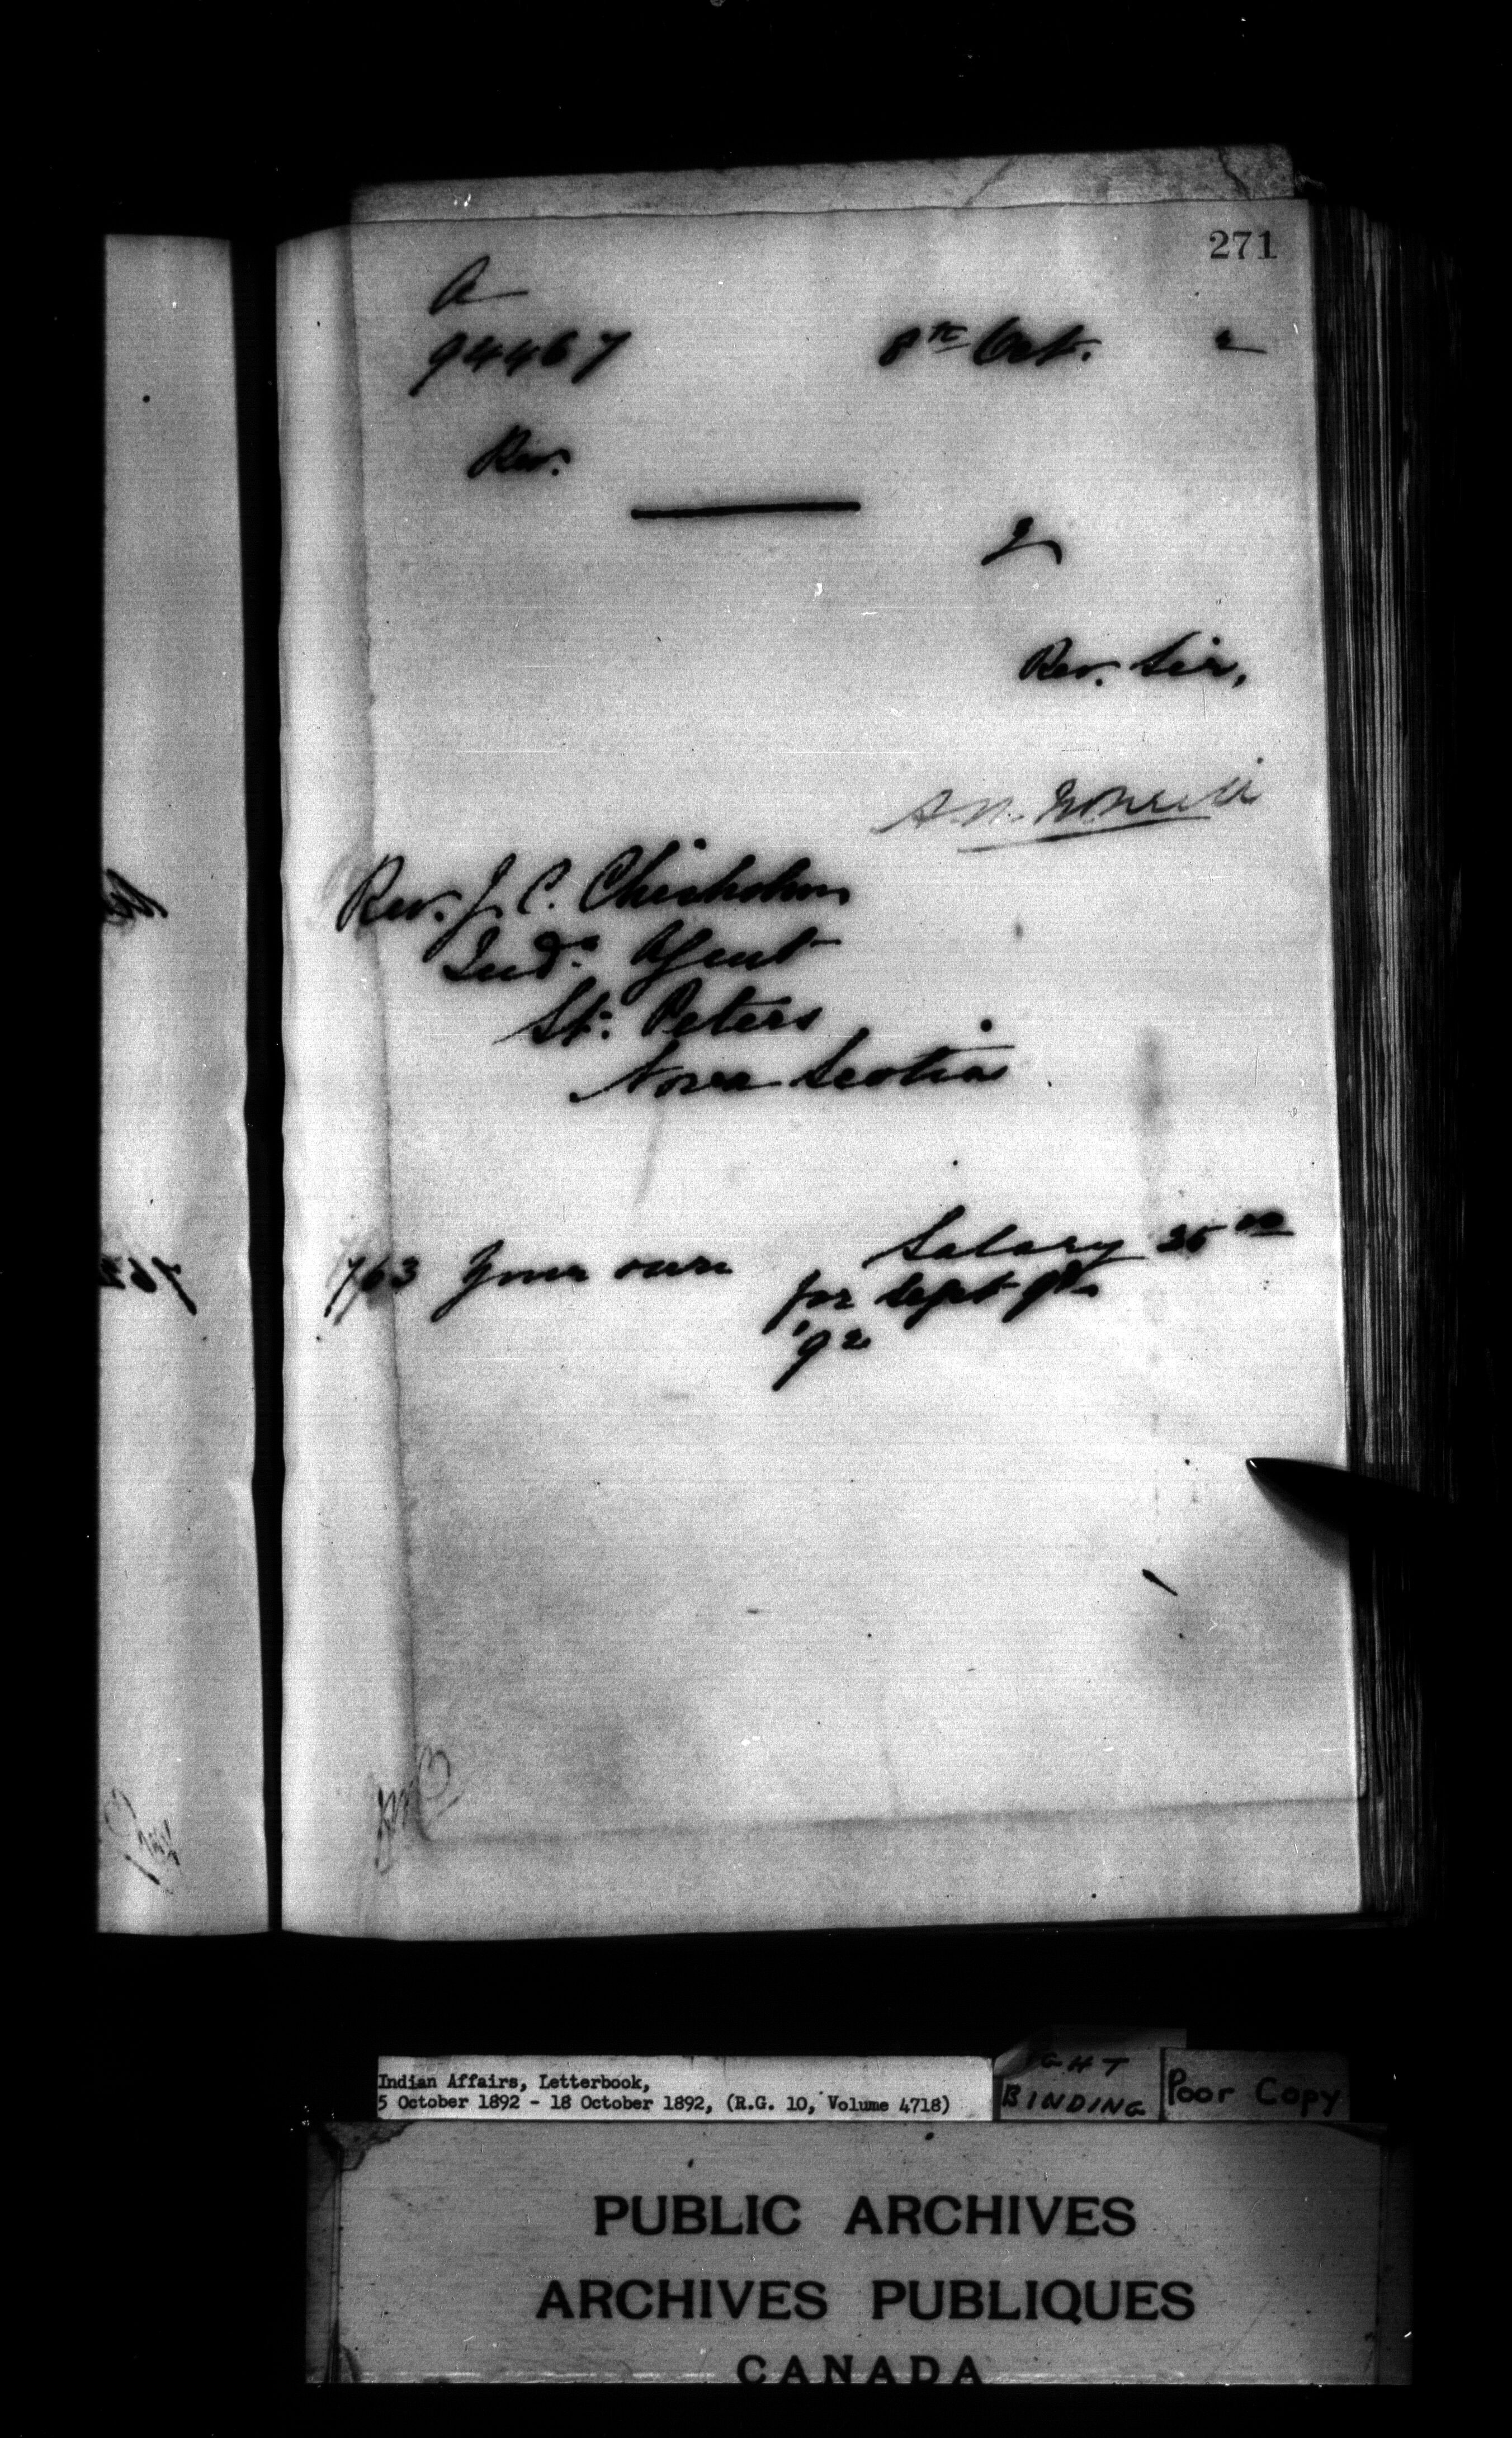 271
A
94467 8th Oct. 2
Rev.
Rev. Sir,
Rev. J. C. Chisholm
Indn. Agent
St. Peters
Nova Scotia
763 Your own Salary 25 00
for Sept qr.
'92
Indian Affairs, Letterbook,
5 October 1892 - 18 October 1892, (R.G. 10, Volume 4718)
GHT
BINDING
Poor Copy
PUBLIC ARCHIVES
ARCHIVES PUBLIQUES
CANADA